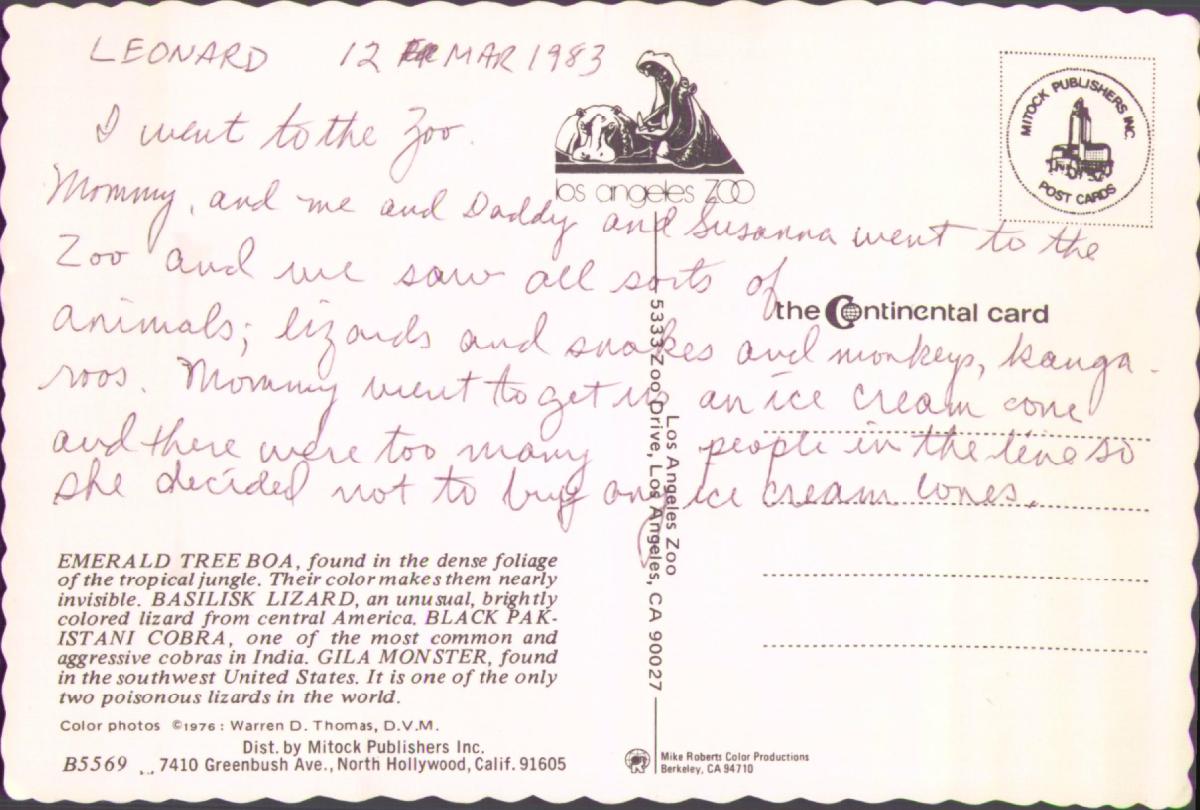 LEONARD 12 MAR 1983
I went to the Zoo.
Mommy, and me and Daddy and Susanna went to the
Zoo and we saw all sorts of
animals; lizards and snakes and monkeys, kanga-
roos. Mommy went to get us an ice cream cone
and there were too many people in the line so
she decided not to buy any ice cream cones.
los angeles ZOO
MITOCK PUBLISHERS INC.
POST CARDS
the Continental card
5333 Zoo Drive, Los Angeles, CA 90027
Los Angeles Zoo
EMERALD TREE BOA, found in the dense foliage
of the tropical jungle. Their color makes them nearly
invisible. BASILISK LIZARD, an unusual, brightly
colored lizard from central America. BLACK PAK-
ISTANI COBRA, one of the most common and
aggressive cobras in India. GILA MONSTER, found
in the southwest United States. It is one of the only
two poisonous lizards in the world.
Color photos ©1976: Warren D. Thomas, D.V.M.
Dist. by Mitock Publishers Inc.
B5569 7410 Greenbush Ave., North Hollywood, Calif. 91605
Mike Roberts Color Productions
Berkeley, CA 94710